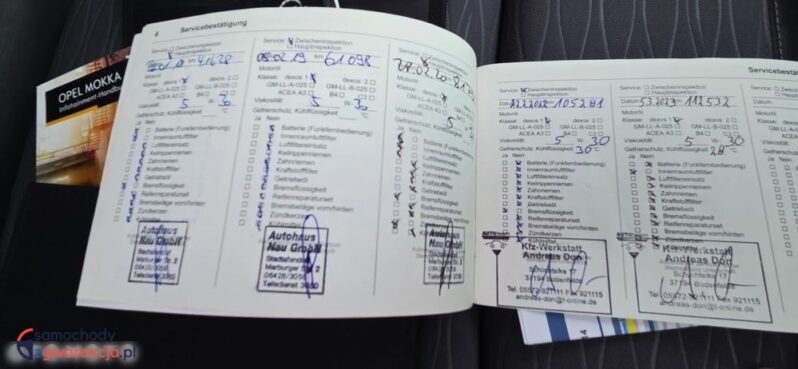 OPEL MOKKA
Infotainment-Handbuch
6 Servicebestätigung
Service: Zwischeninspektion
Hauptinspektion
km 41628
Motoröl
Klasse: dexos 1 dexos 2
GM-LL-A-025 GM-LL-B-025
ACEA A3 B4 C3
Viskosität 5 W 30
Gefrierschutz, Kühlflüssigkeit °C
Ja Nein
Batterie (Funkfernbedienung)
Innenraumluftfilter
Luftfiltereinsatz
Keilrippenriemen
Zahnriemen
Kraftstofffilter
Getriebeöl
Bremsflüssigkeit
Reifenreparaturset
Bremsbeläge vorn/hinten
Zündkerzen
Autohaus
Nau GmbH
Stadtallendorf
Marburger Str. 2
06428/3056
Teledienst 3060
Service: Zwischeninspektion
Hauptinspektion
08.02.19 km 61098
Motoröl
Klasse: dexos 1 dexos 2
GM-LL-A-025 GM-LL-B-025
ACEA A3 B4 C3
Viskosität 5 W 30
Gefrierschutz, Kühlflüssigkeit °C
Ja Nein
Batterie (Funkfernbedienung)
Innenraumluftfilter
Luftfiltereinsatz
Keilrippenriemen
Zahnriemen
Kraftstofffilter
Getriebeöl
Bremsflüssigkeit
Reifenreparaturset
Bremsbeläge vorn/hinten
Zündkerzen
Autohaus
Nau GmbH
Stadtallendorf
Marburger Str. 2
06428/3056
Teledienst 3060
Service: Zwischeninspektion
Hauptinspektion
Motoröl
Klasse: dexos 1
GM-LL-A-025
ACEA A3
Viskosität 5
Gefrierschutz, Kühlflüssigkeit
Ja Nein
Batterie (Funkfernbedienung)
Innenraumluftfilter
Luftfiltereinsatz
Keilrippenriemen
Zahnriemen
Kraftstofffilter
Getriebeöl
Bremsflüssigkeit
Reifenreparaturset
Bremsbeläge vorn/hinten
Zündkerzen
Autohaus
Nau GmbH
Marburger Str. 2
06428/3056
Teledienst 3060
Servicebestä
Service: Zwischeninspektion
Hauptinspektion
105281
Motoröl
Klasse: dexos 1 dexos 2
GM-LL-A-025 GM-LL-B-025
ACEA A3 B4 C3
Viskosität 5 W 30
Gefrierschutz, Kühlflüssigkeit
30 °C
Ja Nein
Batterie (Funkfernbedienung)
Innenraumluftfilter
Luftfiltereinsatz
Keilrippenriemen
Zahnriemen
Kraftstofffilter
Getriebeöl
Bremsflüssigkeit
Reifenreparaturset
Bremsbeläge vorn/hinten
Zündkerzen
Kühlmittel
Kfz-Werkstatt
Andreas Don
Schüchtelke 17
37194 Bodenfelde
Tel. 05572 921111 Fax 921115
andreas-don@t-online.de
Service: Zwischeninspektion
Hauptinspektion
Datum 5.3.2023 112532
Motoröl
Klasse: dexos 1 dexos 2
GM-LL-A-025 GM-LL-B-025
ACEA A3 B4 C3
Viskosität 5 W 30
Gefrierschutz, Kühlflüssigkeit 28 °C
Ja Nein
Batterie (Funkfernbedienung)
Innenraumluftfilter
Luftfiltereinsatz
Keilrippenriemen
Zahnriemen
Kraftstofffilter
Getriebeöl
Bremsflüssigkeit
Reifenreparaturset
Bremsbeläge vorn/hinten
Zündkerzen
Kfz-Werkstatt
Andreas Don
Schüchtelke 17
37194 Bodenfelde
Tel. 05572 921111 Fax 921115
andreas-don@t-online.de
Service:
Datum
Motoröl
Klasse:
Viskosität
Gefrierschutz
Ja Nein
samochody
zgwarancja.pl